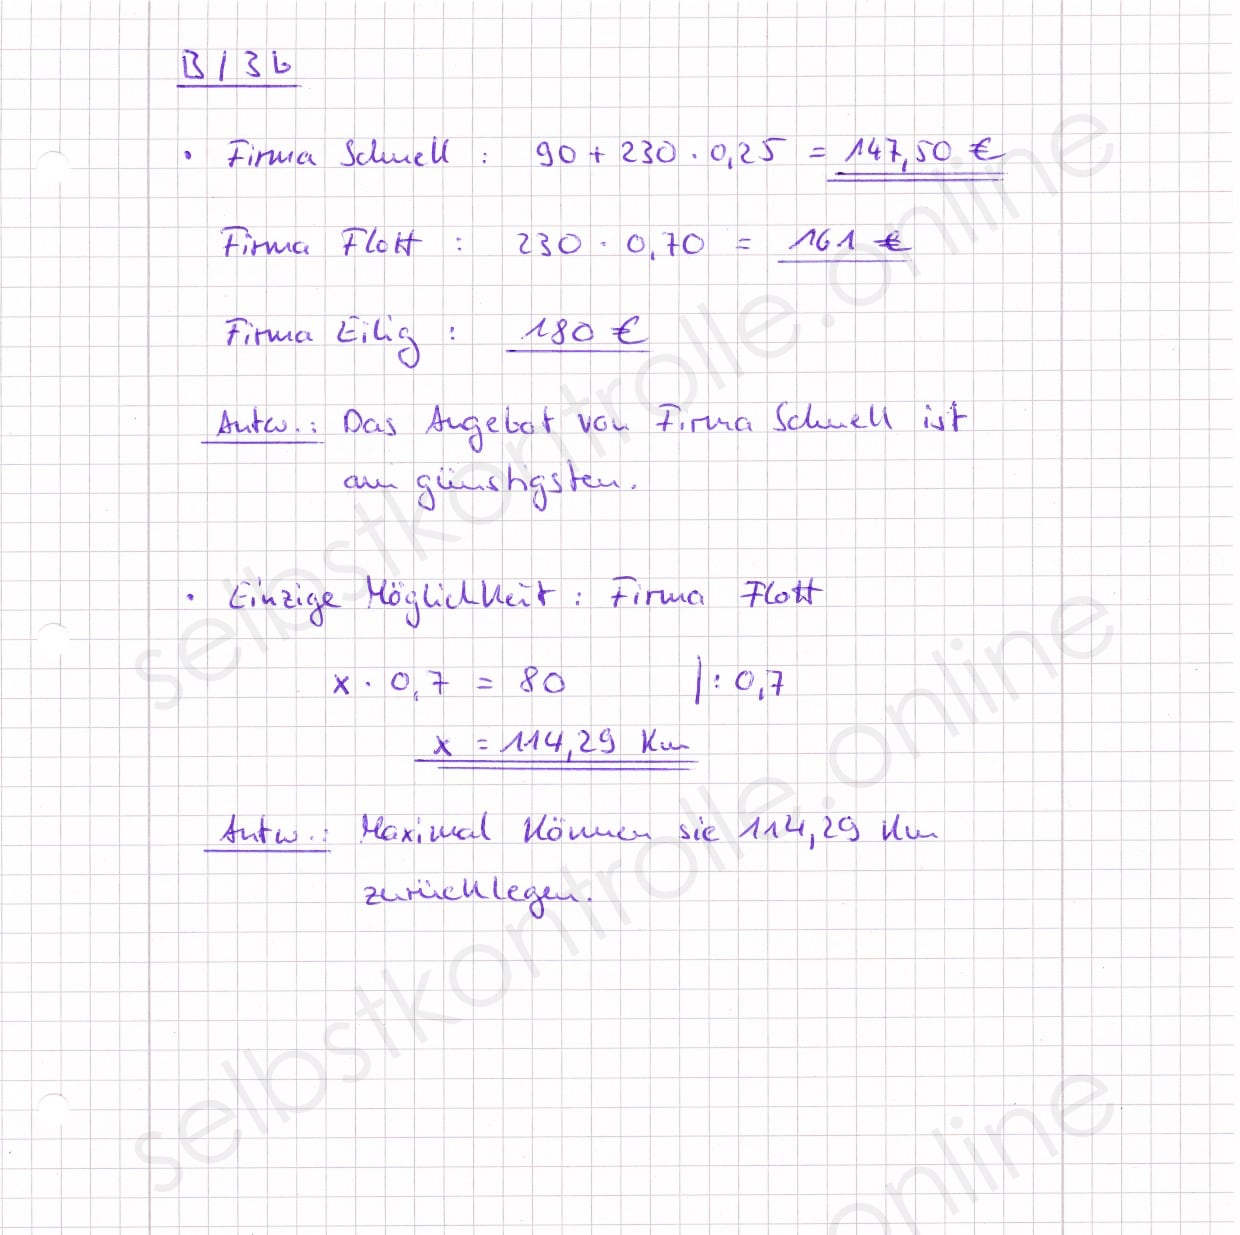 B / 3 b
• Firma Schnell : 90 + 230 · 0,25 = 147,50 €
Firma Flott : 230 · 0,70 = 161 €
Firma Eilig : 180 €
Antw.: Das Angebot von Firma Schnell ist
am günstigsten.
• Einzige Möglichkeit : Firma Flott
x · 0,7 = 80 |: 0,7
x = 114,29 km
Antw.: Maximal können sie 114,29 km
zurücklegen.
selbstkontrolle.online
selbstkontrolle.online
online